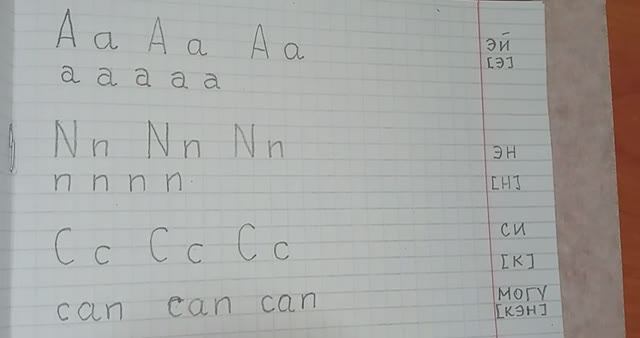 A a A a A a эй
[э]
a a a a a
N n N n N n эн
n n n n [н]
C c C c C c си
[к]
can can can могу
[кэн]